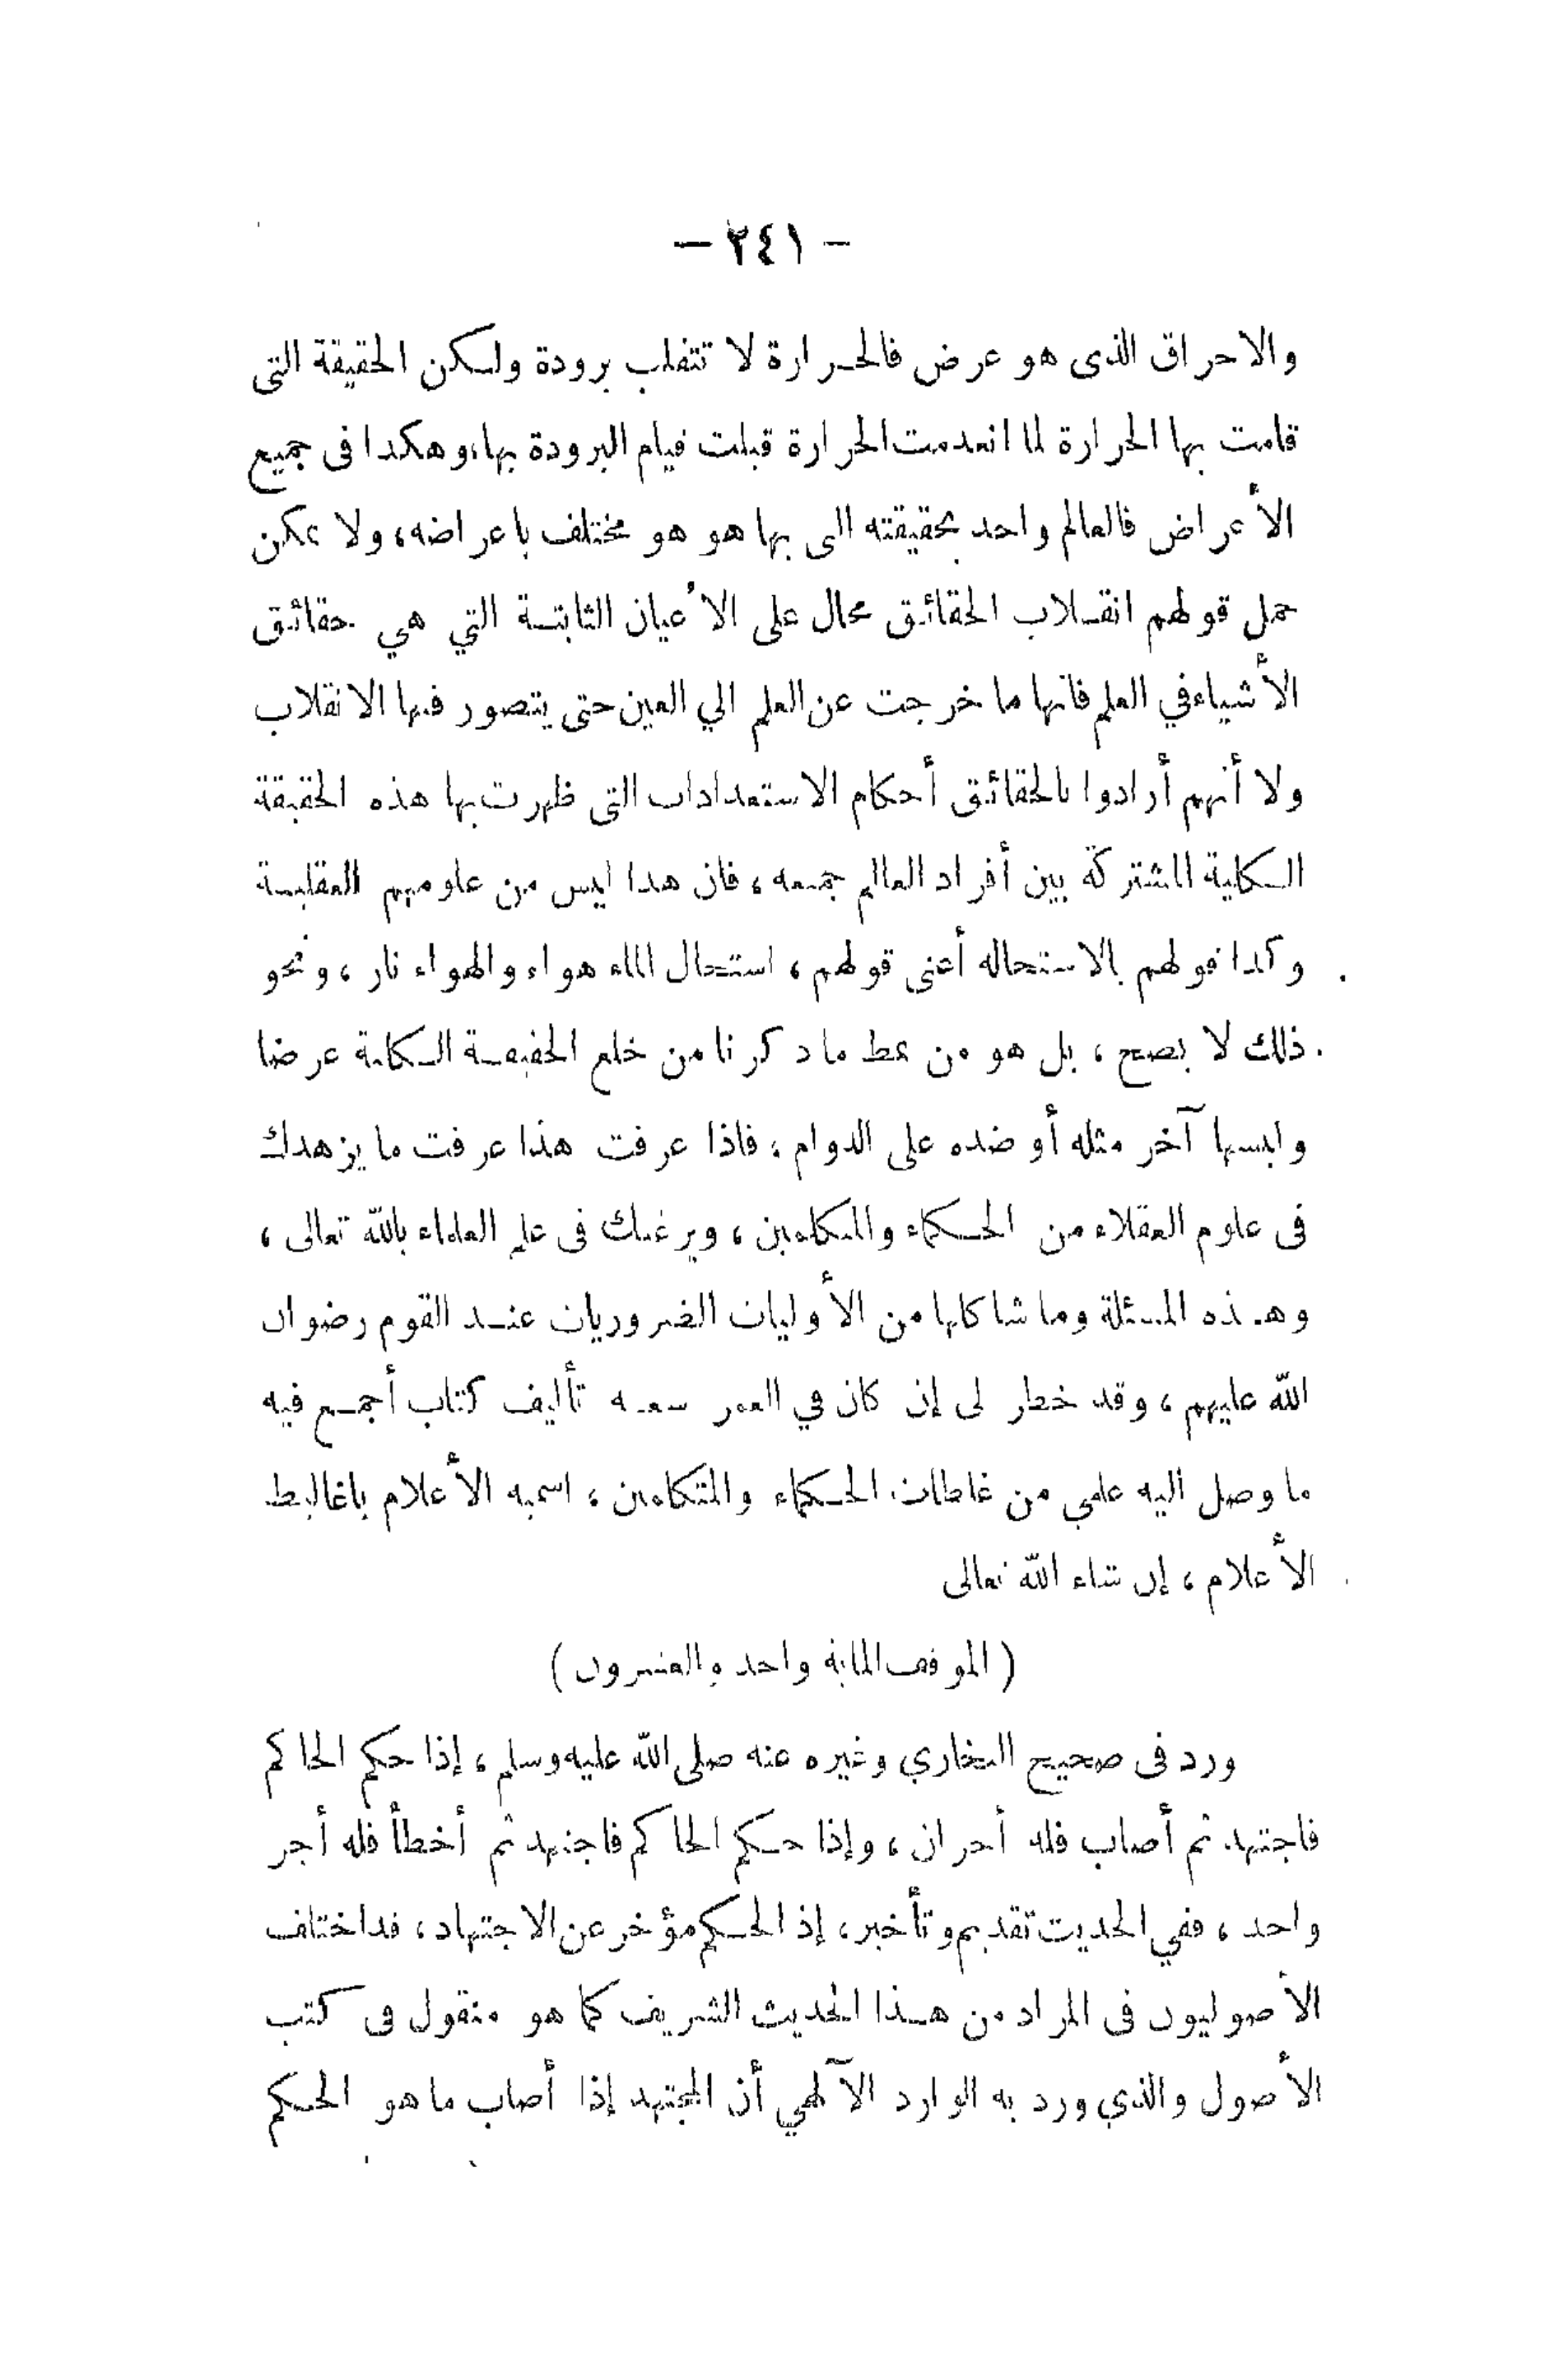 — ٢٤١ —
والاحراق الذى هو عرض فالحرارة لا تنقلب برودة ولكن الحقيقة التى
قامت بها الحرارة لما انعدمت الحرارة قبلت قيام البرودة بها، وهكذا فى جميع
الأعراض فالعالم واحد بحقيقته التى بها هو هو مختلف باعراضه، ولا يمكن
حمل قولهم انقلاب الحقائق محال على الأعيان الثابتة التي هي حقائق
الأشياء في العلم فانها ما خرجت عن العلم الي العين حتى يتصور فيها الانقلاب
ولا أنهم أرادوا بالحقائق أحكام الاستعدادات التى ظهرت بها هذه الحقيقة
الكلية المشتركة بين أفراد العالم جميعه، فان هذا ليس من علومهم العقلية
وكذا قولهم بالاستحالة أعنى قولهم، استحال الماء هواء والهواء نار، ونحو
ذلك لا يصح، بل هو من نمط ما ذكرنا من خلع الحقيقة الكلية عرضا
ولبسها آخر مثله أو ضده على الدوام، فاذا عرفت هذا عرفت ما يزهدك
فى علوم العقلاء من الحكماء والمتكلمين، ويرغبك فى علم العلماء بالله تعالى،
وهذه المسئلة وما شاكلها من الأوليات الضروريات عند القوم رضوان
الله عليهم، وقد خطر لى إن كان في العمر سعة تأليف كتاب أجمع فيه
ما وصل اليه علمي من غلطات الحكماء والمتكلمين، اسميه الأعلام باغاليط
الأعلام، إن شاء الله تعالى
(الموقف المائة واحد والعشرون)
ورد فى صحيح البخاري وغيره عنه صلى الله عليه وسلم، إذا حكم الحاكم
فاجتهد ثم أصاب فله أجران، وإذا حكم الحاكم فاجتهد ثم أخطأ فله أجر
واحد، ففي الحديث تقديم وتأخير، إذ الحكم مؤخر عن الاجتهاد، قد اختلف
الأصوليون فى المراد من هذا الحديث الشريف كما هو منقول فى كتب
الأصول والذي ورد به الوارد الآلهي أن المجتهد إذا أصاب ما هو الحكم